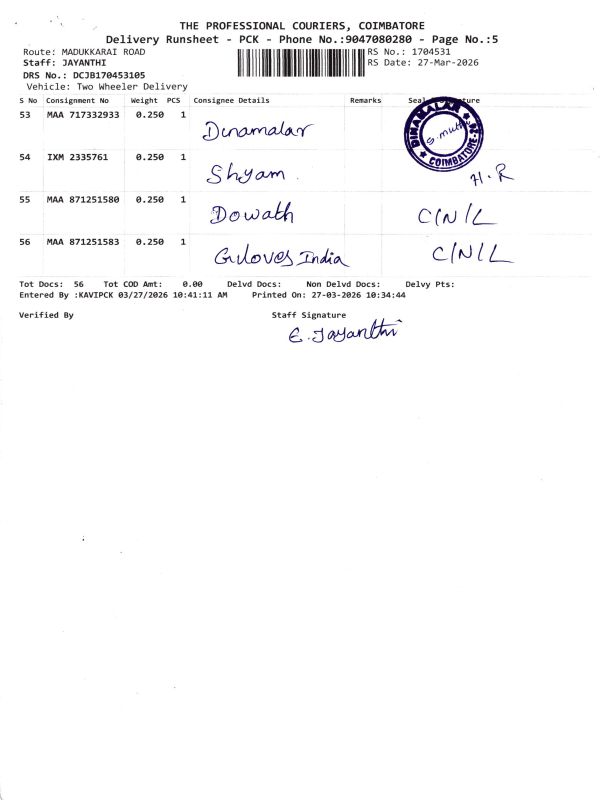 THE PROFESSIONAL COURIERS, COIMBATORE
Delivery Runsheet - PCK - Phone No.:9047080280 - Page No.:5
Route: MADUKKARAI ROAD RS No.: 1704531
Staff: JAYANTHI RS Date: 27-Mar-2026
DRS No.: DCJB170453105
Vehicle: Two Wheeler Delivery
S No Consignment No Weight PCS Consignee Details Remarks
53 MAA 717332933 0.250 1 Dinamalar DINAMALAR S. Muthu COIMBATORE
54 IXM 2335761 0.250 1 Shyam. H.R
55 MAA 871251580 0.250 1 Dowath C/N/L
56 MAA 871251583 0.250 1 Guloves India C/N/L
Tot Docs: 56 Tot COD Amt: 0.00 Delvd Docs: Non Delvd Docs: Delvy Pts:
Entered By :KAVIPCK 03/27/2026 10:41:11 AM Printed On: 27-03-2026 10:34:44
Verified By Staff Signature
E. Jayanthi